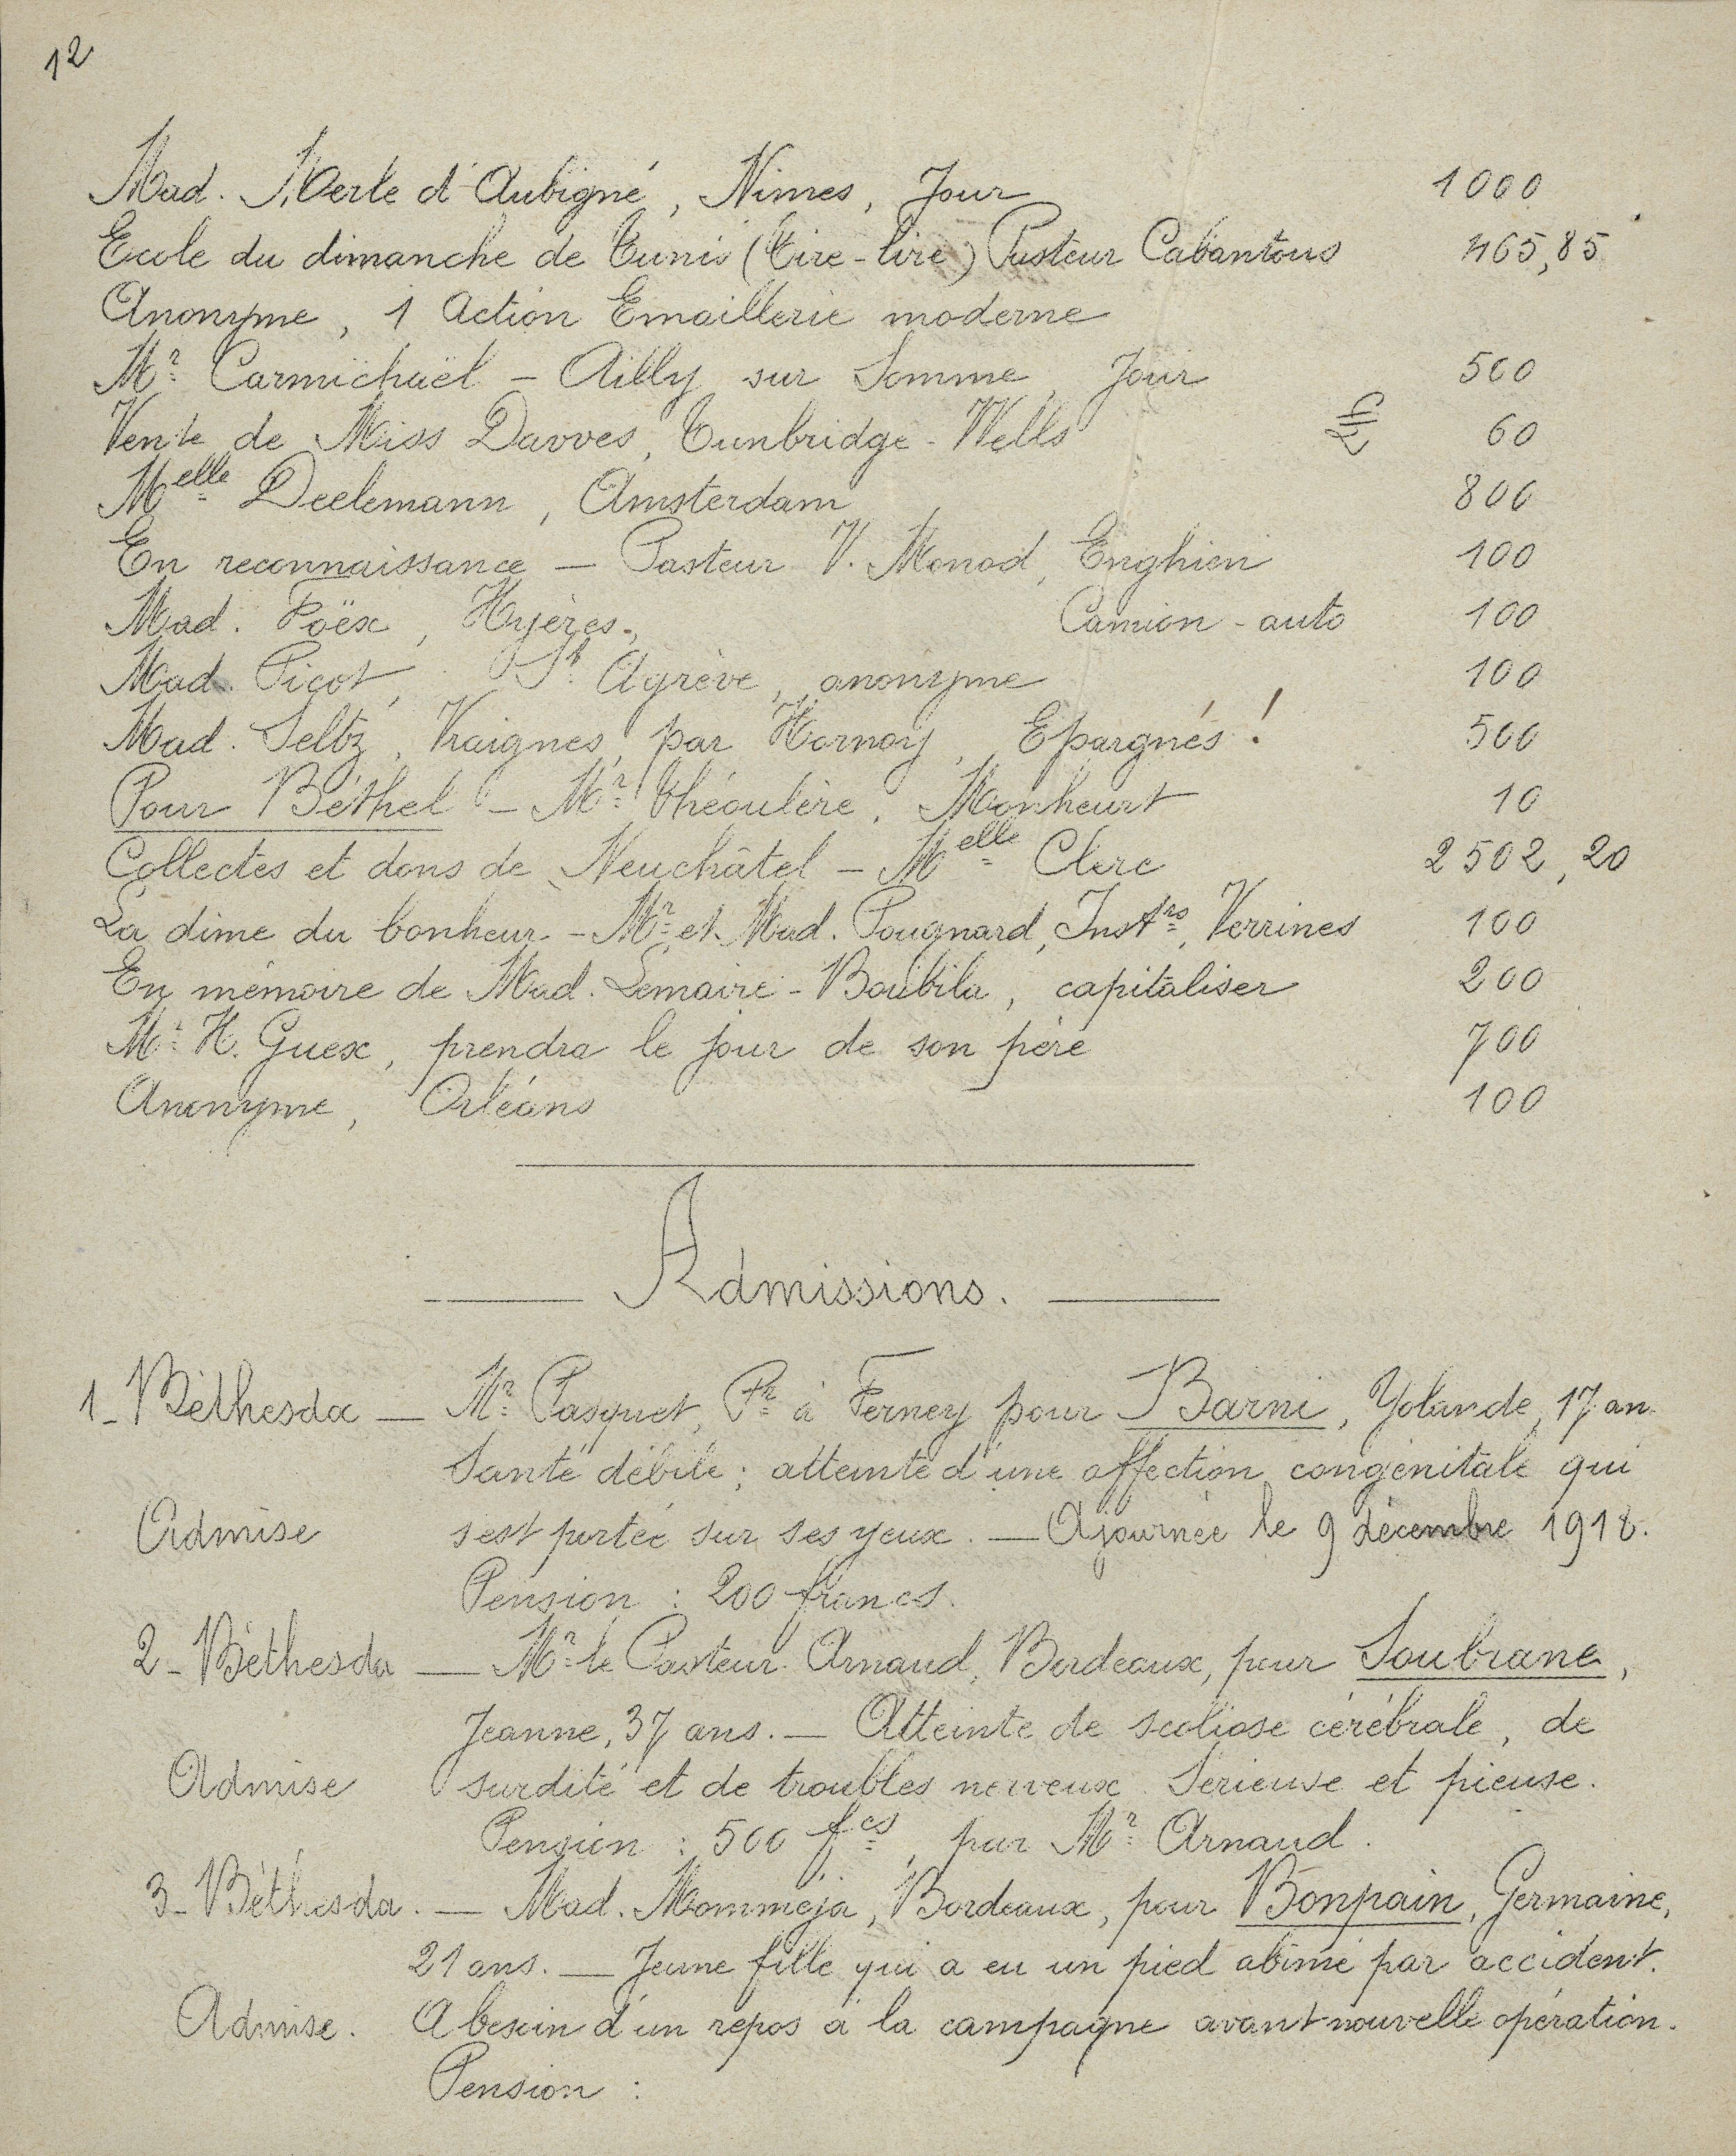 12
Mad. Merle d'Aubigné, Nimes, Jour 1000
Ecole du dimanche de Tunis (Tire-lire) Pasteur Cabantous 465,85
Anonyme, 1 Action Emaillerie moderne
Mr. Carmichaël - Ailly sur Somme, Jour 500
Vente de Miss Davves, Tunbridge-Wells 60
Melle Deelemann, Amsterdam 800
En reconnaissance — Pasteur V. Monod, Enghien 100
Mad. Foëx, Hyères, Camion-auto 100
Mad. Picot, St. Agrève, anonyme 100
Mad. Seltz, Vraignes, par Hornoy, Epargnés! 500
Pour Béthel - Mr. Théoulère, Monheurt 10
Collectes et dons de Neuchâtel - Melle Clerc 2502,20
La dîme du bonheur - Mr. et Mad. Pougnard, Instrs, Verrines 100
En mémoire de Mad. Lemaire-Boubila, capitaliser 200
Mr. H. Guex, prendra le jour de son père 700
Anonyme, Orléans 100
Admissions.
1- Béthesda — Mr. Pasquet, Pr. à Ferney pour Barni, Yolande, 17 an
Santé débile; atteinte d'une affection congénitale qui
Admise s'est portée sur ses yeux. — Ajournée le 9 décembre 1918.
Pension : 200 francs.
2- Béthesda — Mr. le Pasteur Arnaud, Bordeaux, pour Soubrane,
Jeanne, 37 ans. — Atteinte de scoliose cérébrale, de
Admise surdité et de troubles nerveux. Sérieuse et pieuse.
Pension : 500 fcs, par Mr. Arnaud.
3- Béthesda. — Mad. Mommeja, Bordeaux, pour Bonpain, Germaine,
21 ans. — Jeune fille qui a eu un pied abîmé par accident.
Admise. A besoin d'un repos à la campagne avant nouvelle opération.
Pension :